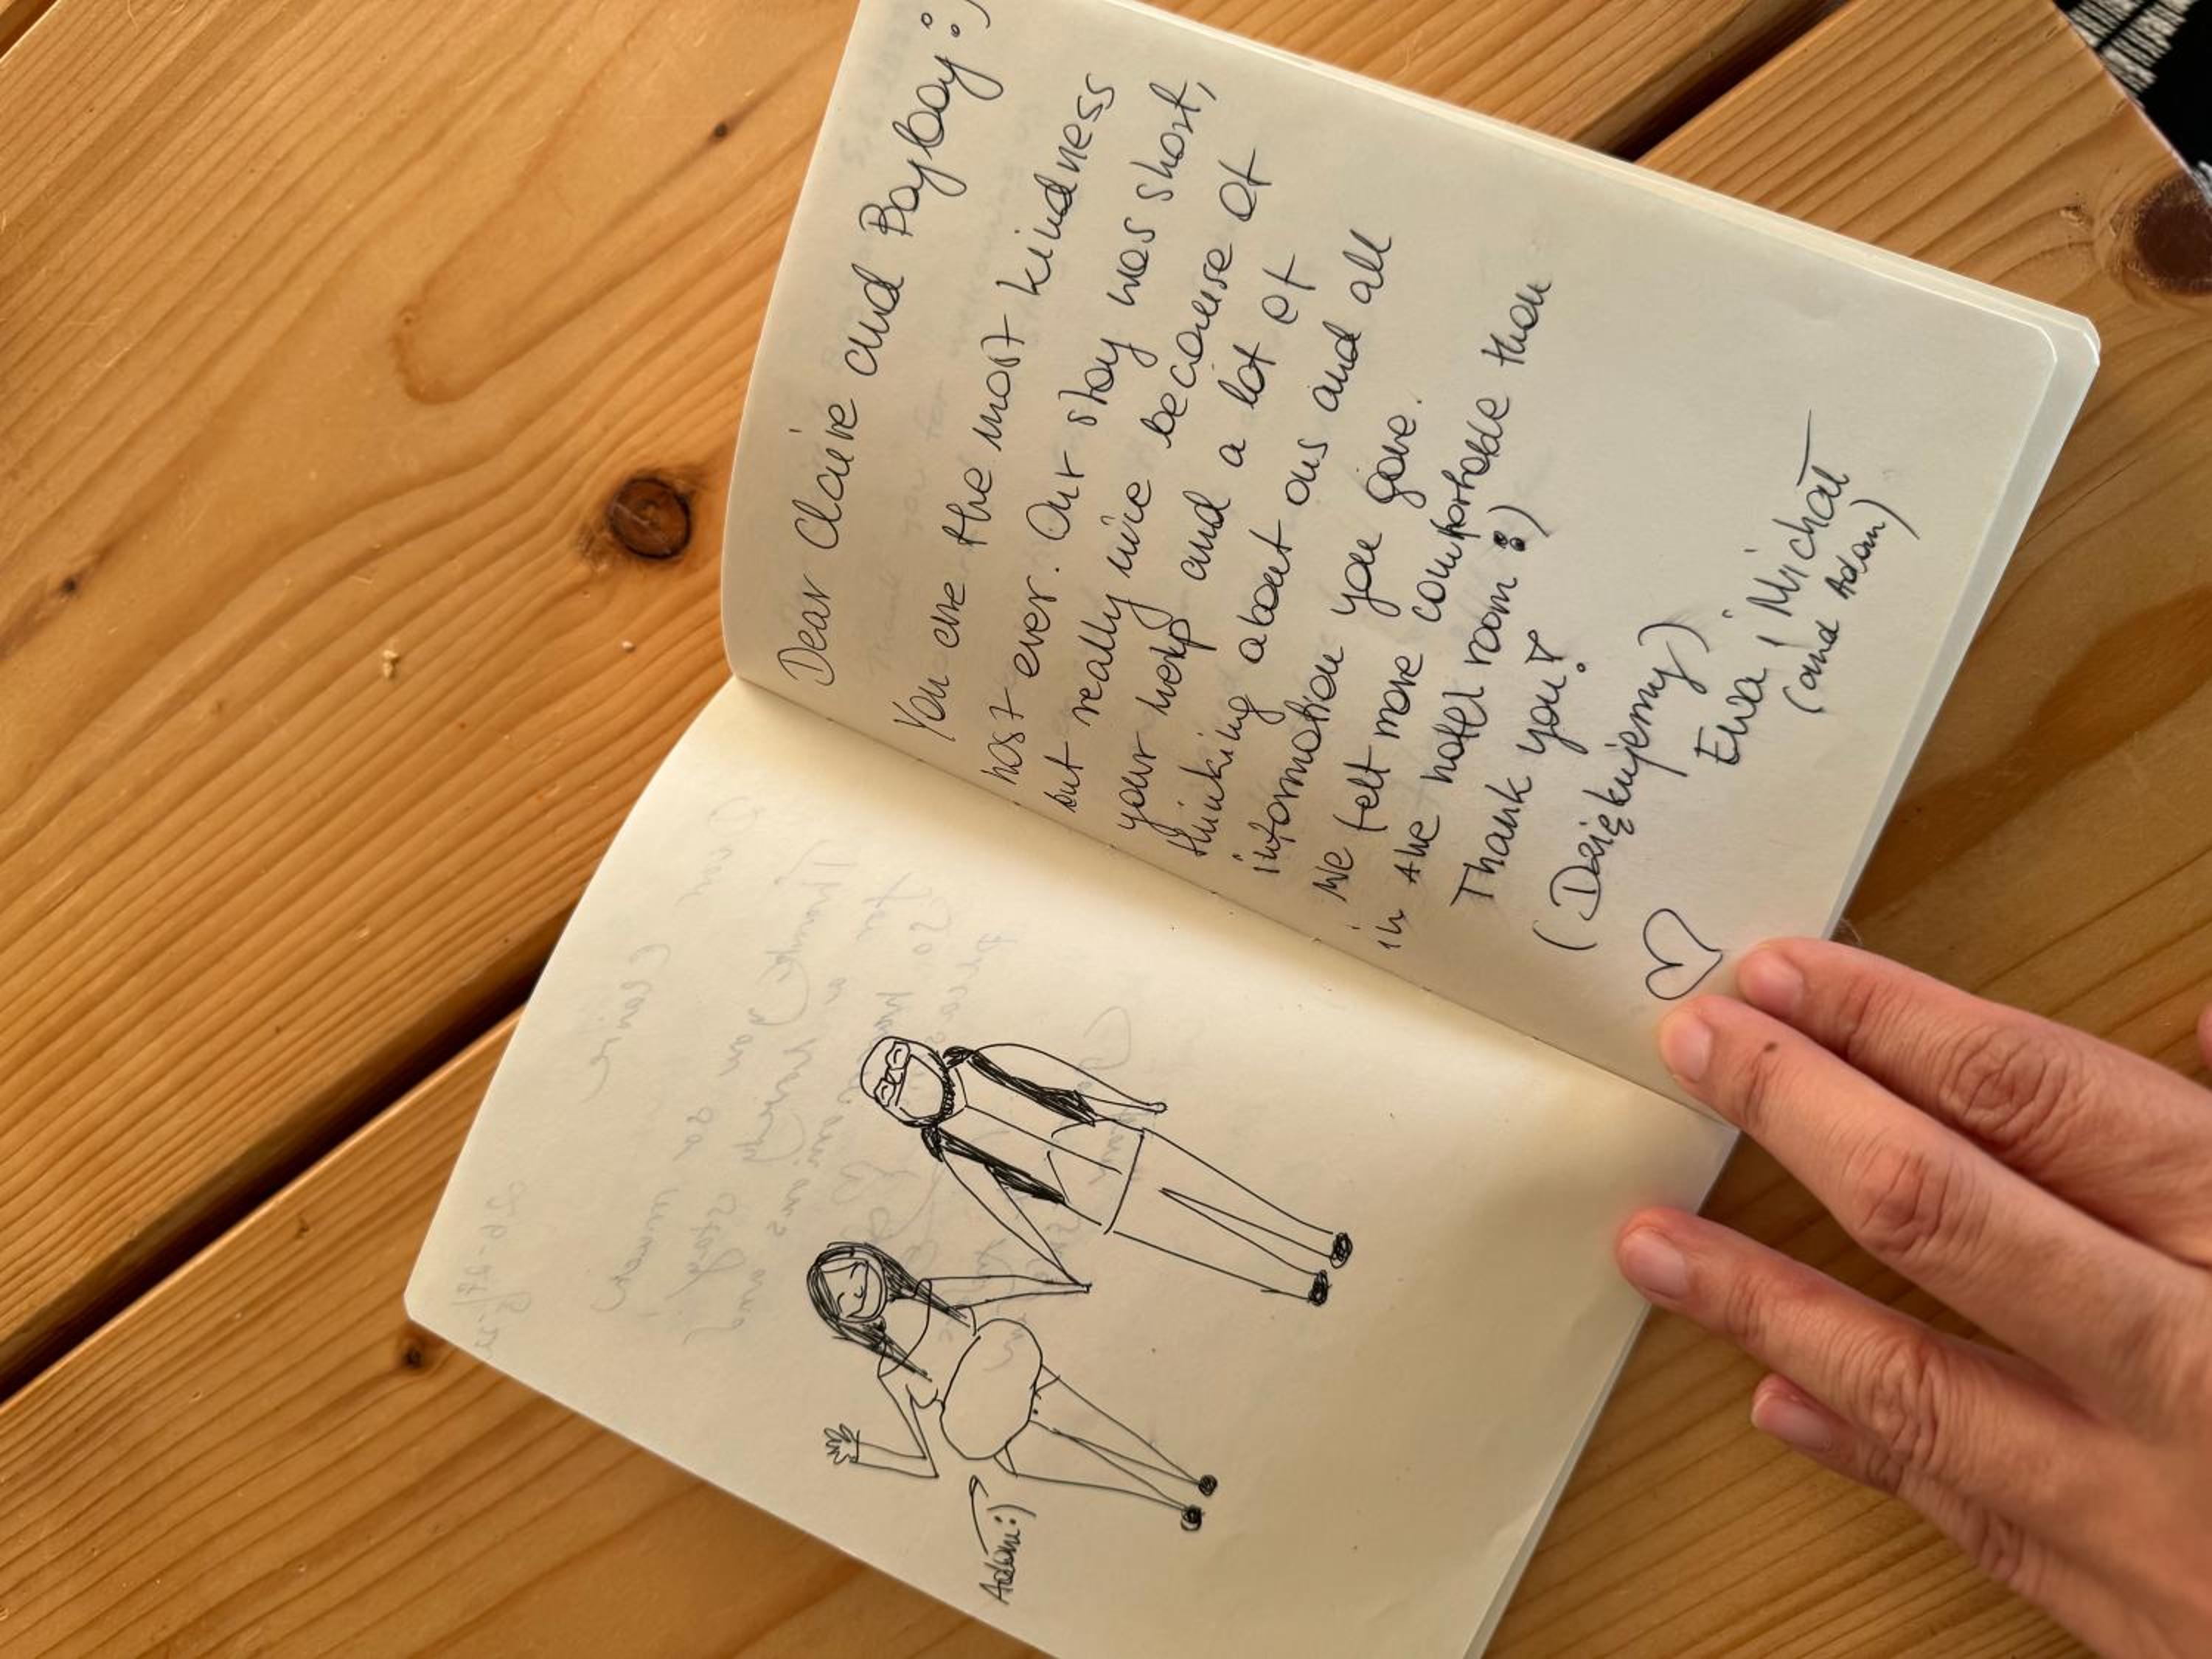 Dear Claire and Bayboy :)
You are the most kindness
host ever. Our stay was short,
but really nice becouse of
your help and a lot of
thinking about ous and all
information you gave.
We felt more comfortable than
in the hotel room :)
Thank you!
(Dziękujemy)
Ewa i Michał
(and Adam)
Adam :)